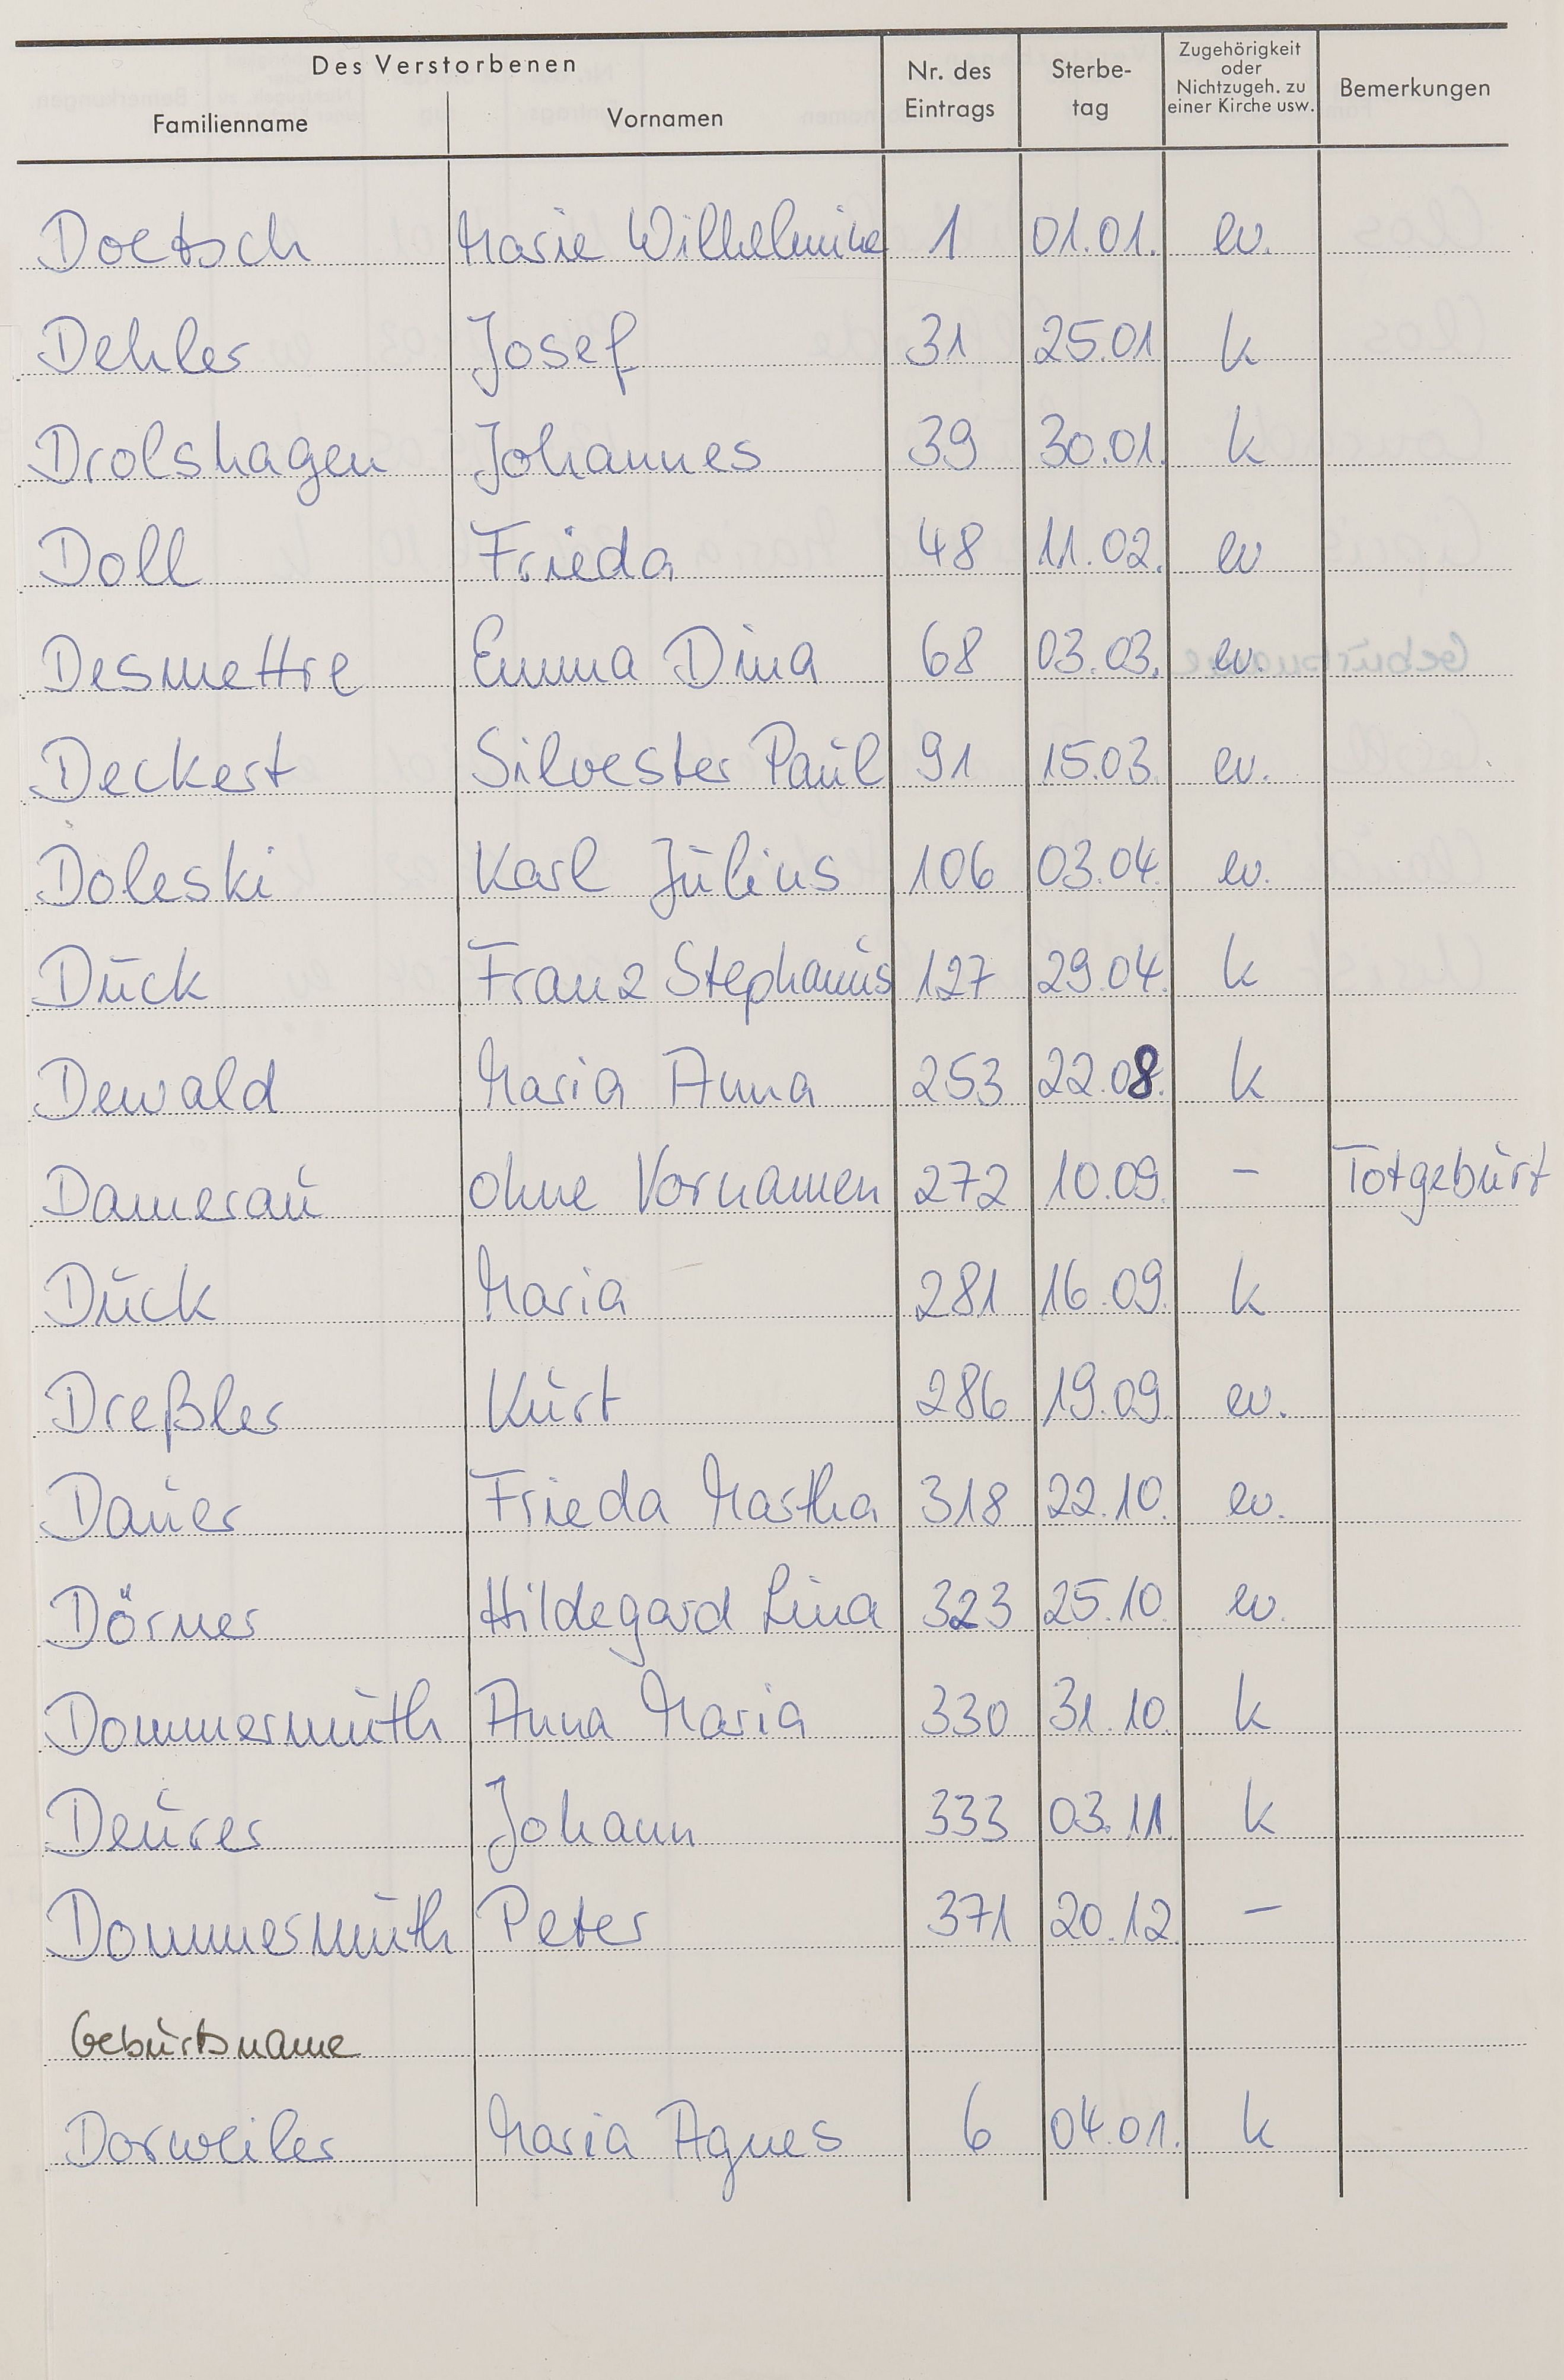 Des Verstorbenen
Familienname Vornamen Nr. des Eintrags Sterbe-tag Zugehörigkeit oder Nichtzugeh. zu einer Kirche usw. Bemerkungen
Doetsch Marie Wilhelmine 1 01.01. ev.
Dehler Josef 31 25.01 k
Drolshagen Johannes 39 30.01. k
Doll Frieda 48 11.02. ev
Desmettre Emma Dina 68 03.03. ev.
Deckert Silvester Paul 91 15.03 ev.
Doleski Karl Julius 106 03.04. ev.
Duck Franz Stephanus 127 29.04. k
Dewald Maria Anna 253 22.08. k
Damerau ohne Vornamen 272 10.09. – Totgeburt
Duck Maria 281 16.09. k
Dreßler Kurt 286 19.09. ev.
Dauer Frieda Martha 318 22.10. ev.
Dörner Hildegard Lina 323 25.10. ev.
Dommermuth Anna Maria 330 31.10. k
Deurer Johann 333 03.11. k
Dommermuth Peter 371 20.12. –
Geburtsname
Dorweiler Maria Agnes 6 04.01. k